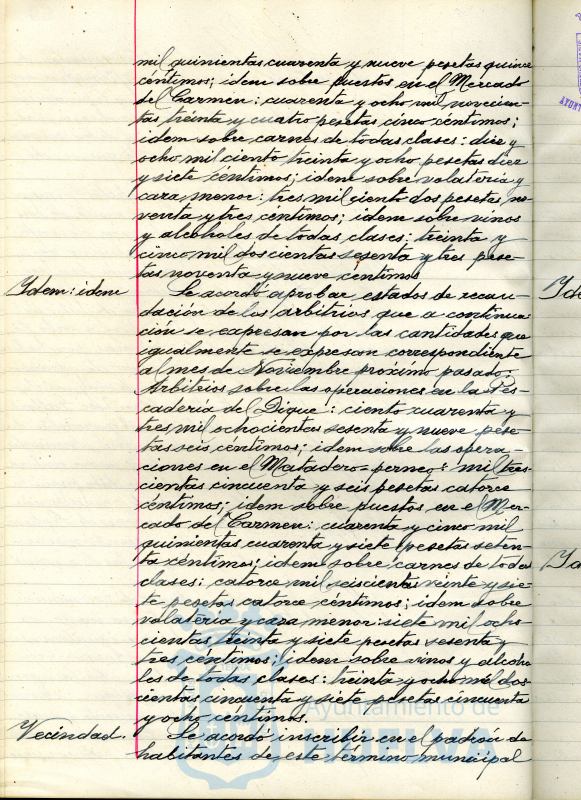 mil quinientas cuarenta y nueve pesetas quince
céntimos; idem sobre puestos en el Mercado
del Carmen: cuarenta y ocho mil novecien-
tas treinta y cuatro pesetas cinco céntimos;
idem sobre carnes de todas clases: diez y
ocho mil ciento treinta y ocho pesetas diez
y siete céntimos; idem sobre volateria y
caza menor: tres mil ciento dos pesetas no-
venta y tres céntimos; idem sobre vinos
y alcoholes de todas clases; treinta y
cinco mil doscientas sesenta y tres pese-
tas noventa y nueve céntimos
Idem: idem Se acordó aprobar estados de recau-
dación de los arbitrios que a continua-
ción se expresan por las cantidades que
igualmente se expresan correspondiente
al mes de Noviembre próximo pasado:
Arbitrios sobre las operaciones en la Pes-
cadería del Dique: ciento cuarenta y
tres mil ochocientas sesenta y nueve pese-
tas seis céntimos; idem sobre las opera-
ciones en el Matadero-perneo: mil tres-
cientas cincuenta y seis pesetas catorce
céntimos; idem sobre puestos en el Mer-
cado del Carmen: cuarenta y cinco mil
quinientas cuarenta y siete pesetas seten-
ta céntimos; idem sobre carnes de todas
clases: catorce mil seiscientas veinte y sie-
te pesetas catorce céntimos; idem sobre
volateria y caza menor: siete mil ocho
cientas treinta y siete pesetas sesenta y
tres céntimos; idem sobre vinos y alcoho
les de todas clases: treinta y ocho mil dos-
cientas cincuenta y siete pesetas cincuenta
y ocho céntimos.
Vecindad. Se acordó inscribir en el padrón de
habitantes de este término municipal
Ayuntamiento de
HUELVA